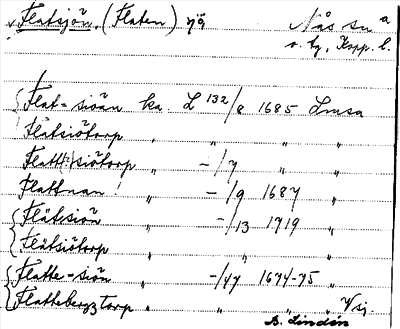 Flatsjön, (Flaten) sjö Nås sn a
o. by, Kopp. l.
Flat=siöän ka. L 132/8 1685 Lmsa
Flatsiötorp " " " "
Flatt siötorp " -/7 " "
Flattnan! " -/9 1687 "
Flätsiön " -/13 1719 "
Flätsiötorp " " " "
Flatte=siön " -/47 1674-75 "
Flattebergztorp " " " "
B. Lindén